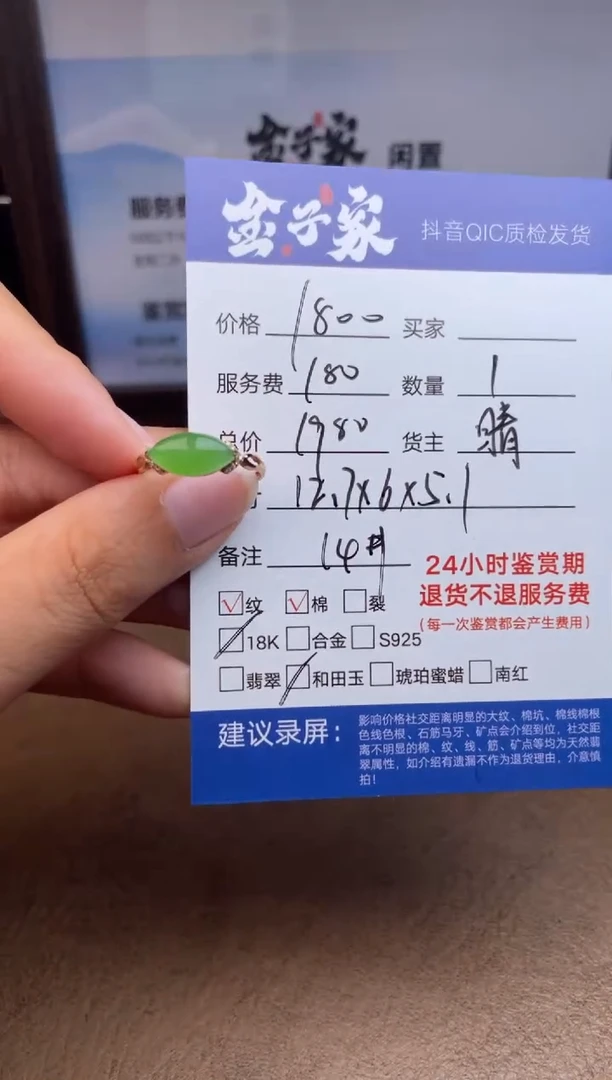 金子家 闲置
服务费
金子家 抖音QIC质检发货
价格 1800 买家
服务费 180 数量 1
总价 1980 货主 晴
寸 12.7×6×5.1
备注 14#
24小时鉴赏期
退货不退服务费
(每一次鉴赏都会产生费用)
纹 棉 裂
18K 合金 S925
翡翠 和田玉 琥珀蜜蜡 南红
建议录屏：
影响价格社交距离明显的大纹、棉坑、棉线棉根
色线色根、石筋马牙、矿点会介绍到位，社交距
离不明显的棉、纹、线、筋、矿点等均为天然翡
翠属性，如介绍有遗漏不作为退货理由，介意慎
拍！